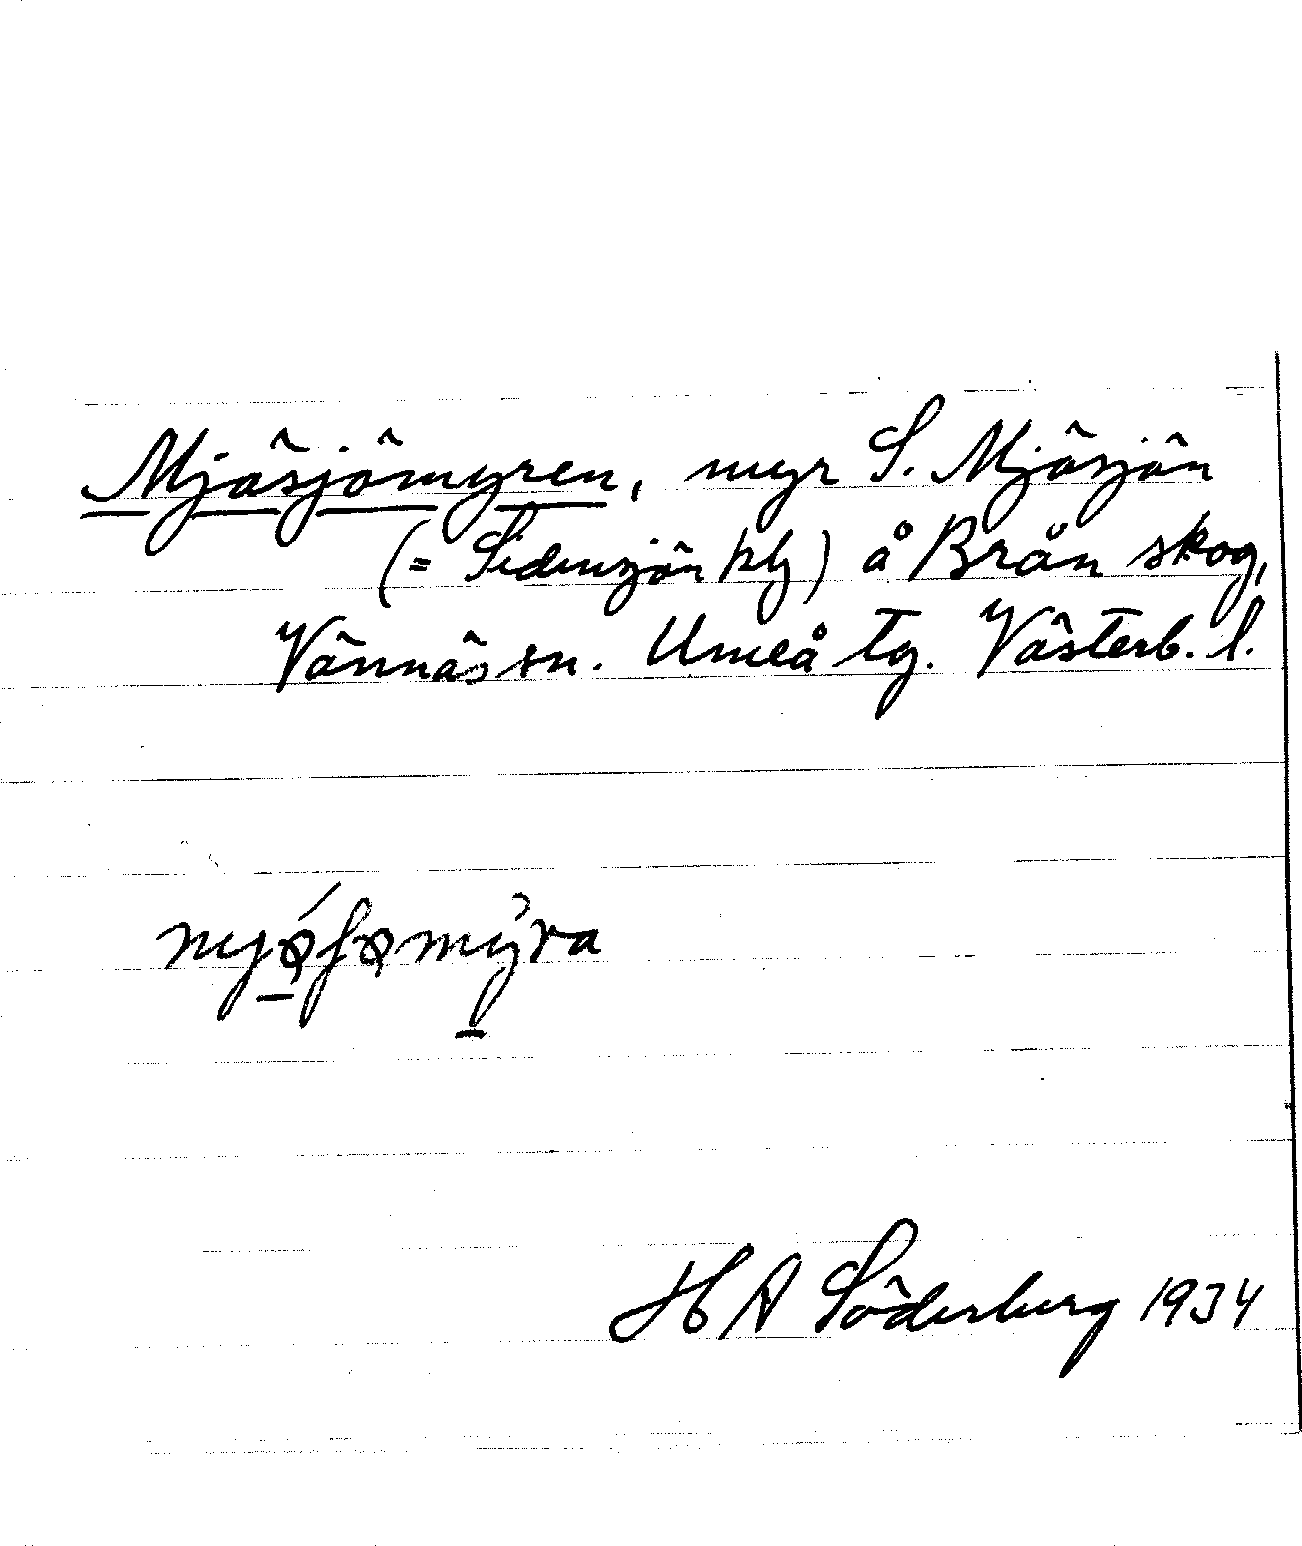 Mjösjömyren, myr S. Mjösjön
(= Sidensjön ) å Brån skog,
Vännäs sn. Umeå tg. Västerb. l.
mjǿʃømỳra
H A Söderberg 1934